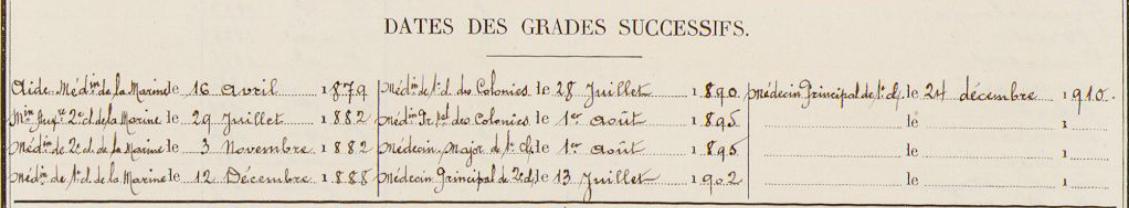 DATES DES GRADES SUCCESSIFS.
Aide-Méd.in de la Marine le 16 Avril 1879
M.in Aux.re 2e cl. de la Marine le 29 Juillet 1882
Méd.in de 2e cl. de la Marine le 3 Novembre 1882
Méd.in de 1e cl. de la Marine le 12 Décembre 1888
Méd.in de 1e cl. des Colonies le 28 Juillet 1890
Méd.in Pr.pal des Colonies le 1er Août 1895
Médecin Major de 1e Cl. le 1er Août 1895
Médecin Principal de 2e cl. le 13 Juillet 1902
Médecin Principal de 1e cl. le 24 décembre 1910.
le 1
le 1
le 1